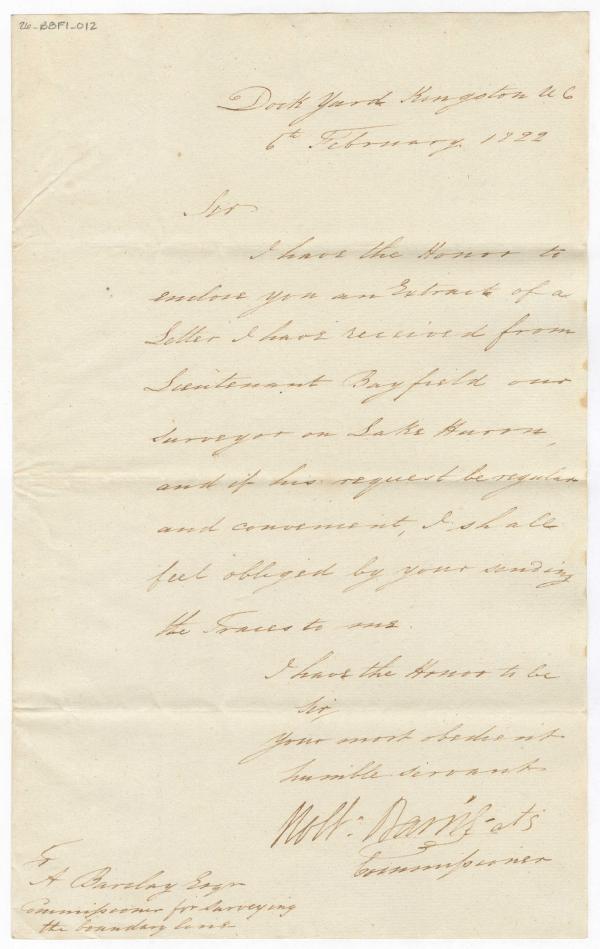 26-BBF1-012
Dock Yard Kingston U C
6th February 1822
Sir
I have the Honor to
enclose you an Extract of a
Letter I have received from
Lieutenant Bayfield our
surveyor on Lake Huron,
and if his request be regular
and convenient, I shall
feel obliged by your sending
the Traces to me.
I have the Honor to be
Sir
Your most obedient
humble servant
Robt. Barrie
Commissioner
To
A Barclay Esqr
Commissioner for surveying
the boundary line